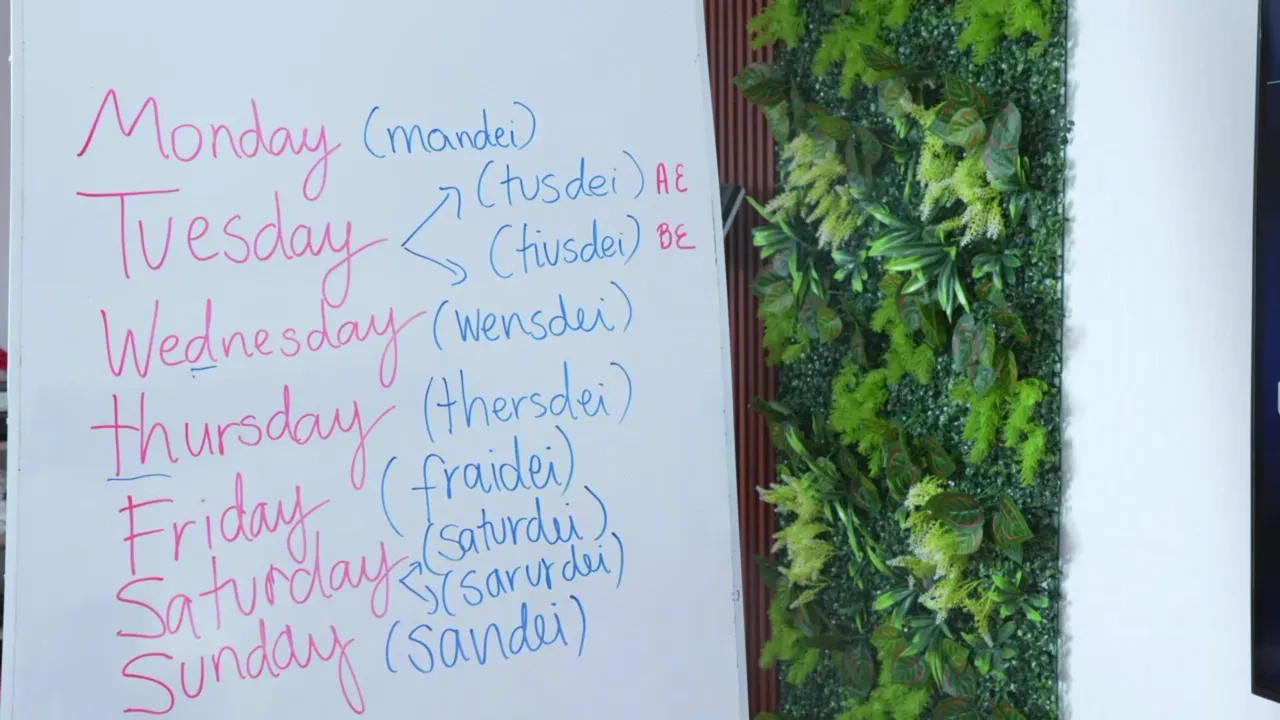 Monday (mandei)
(tusdei) AE
Tuesday
(tiusdei) BE
Wednesday (wensdei)
thursday (thersdei)
Friday (fraidei)
Saturday (saturdei)
(sarurdei)
Sunday (sandei)